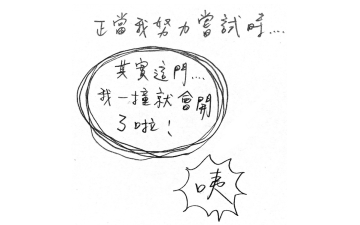 正當我努力嘗試時....
其實這門....
我一撞就會開
了啦！
咦